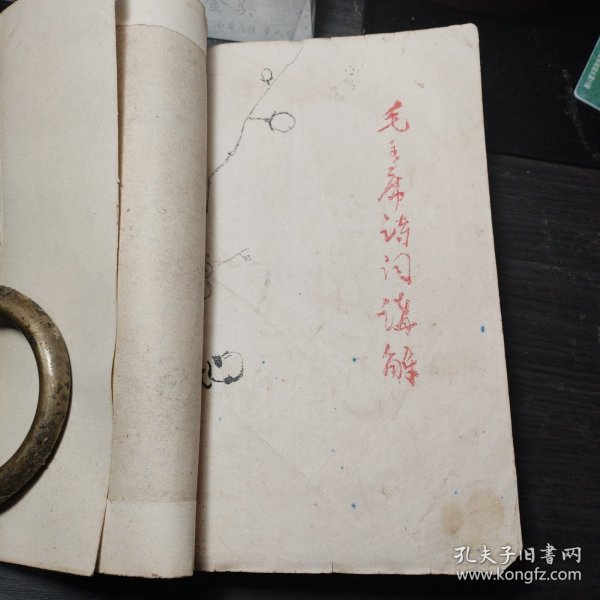 毛主席诗词講解
孔夫子旧书网
www.kongfz.com